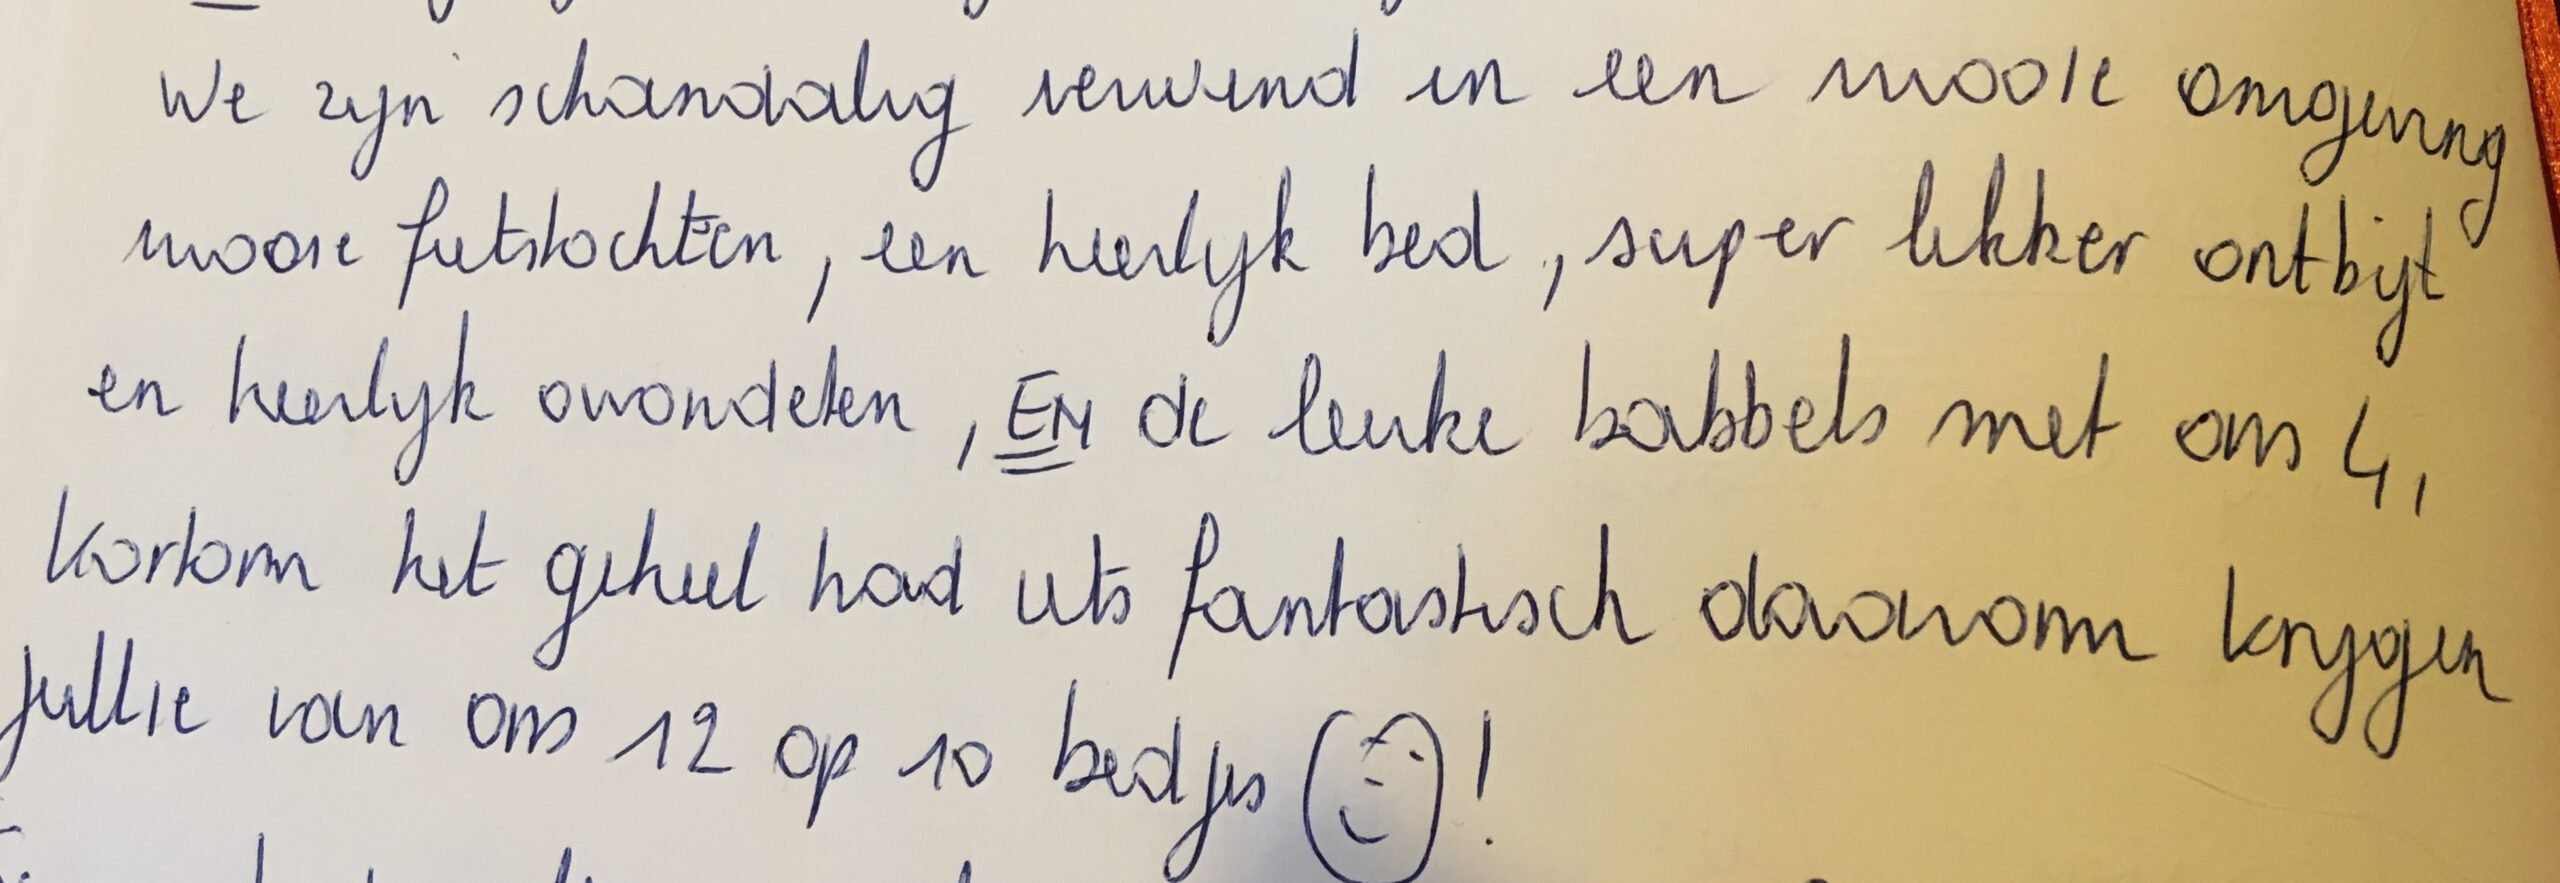 We zijn schandalig verwend in een mooie omgeving
mooie fietstochten, een heerlijk bed, super lekker ontbijt
en heerlijk avondeten, EN de leuke babbels met ons 4,
kortom het geheel had iets fantastisch daarom krijgen
jullie van ons 12 op 10 bedjes !